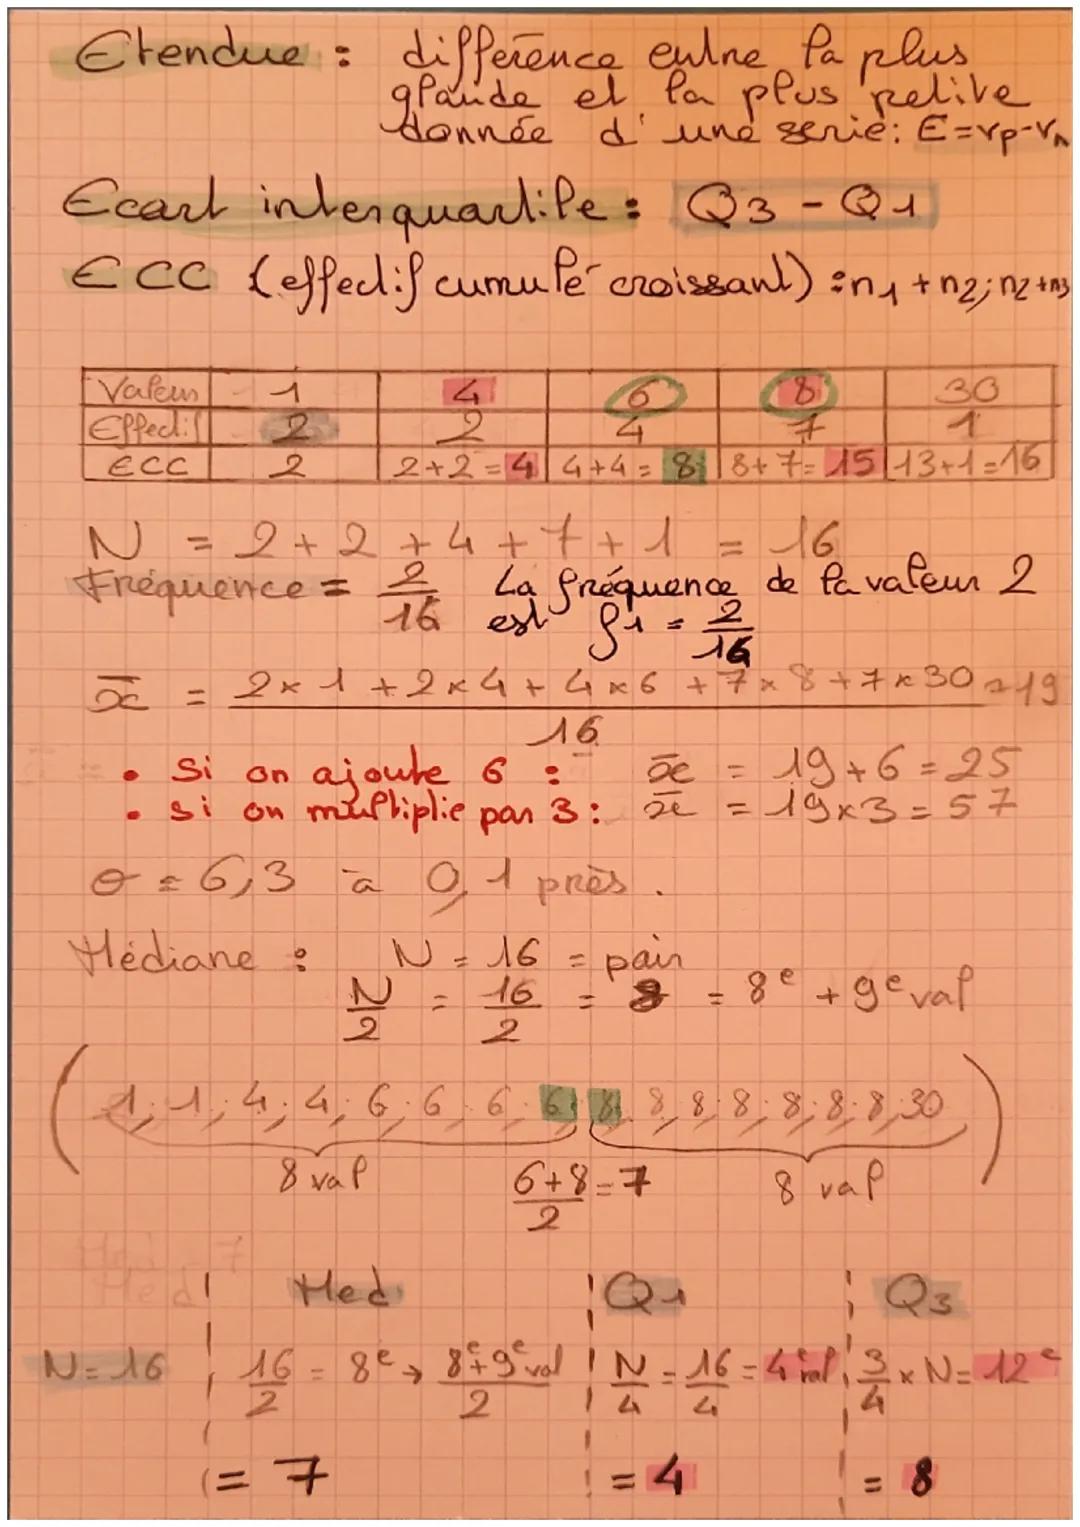 Etendue : différence entre la plus
grande et la plus petite
donnée d'une serie : E=vp-vn
Ecart interquartile : Q3 - Q1
ECC (effectif cumulé croissant) : n1 + n2; n2+n3
Valeur 1 4 6 8 30
Effectif 2 2 4 7 1
ECC 2 2+2=4 4+4=8 8+7=15 13+1=16
N = 2+2+4+7+1 = 16
Fréquence = 2/16 La fréquence de la valeur 2
est f1 = 2/16
x̄ = (2×1+2×4+4×6+7×8+7×30)/16 = 19
• Si on ajoute 6 : x̄ = 19+6=25
• si on multiplie par 3 : x̄ = 19×3=57
σ = 6,3 à 0,1 près.
Médiane : N = 16 = pair
N/2 = 16/2 = 8 = 8e + 9e val
(1; 1; 4; 4; 6; 6; 6; 6; 8; 8; 8; 8; 8; 8; 8; 30)
8 val (6+8)/2=7 8 val
Med Q1 Q3
N=16 16/2 = 8e → (8e+9e val)/2 N/4 = 16/4 = 4e val 3/4 × N= 12e
= 7 = 4 = 8